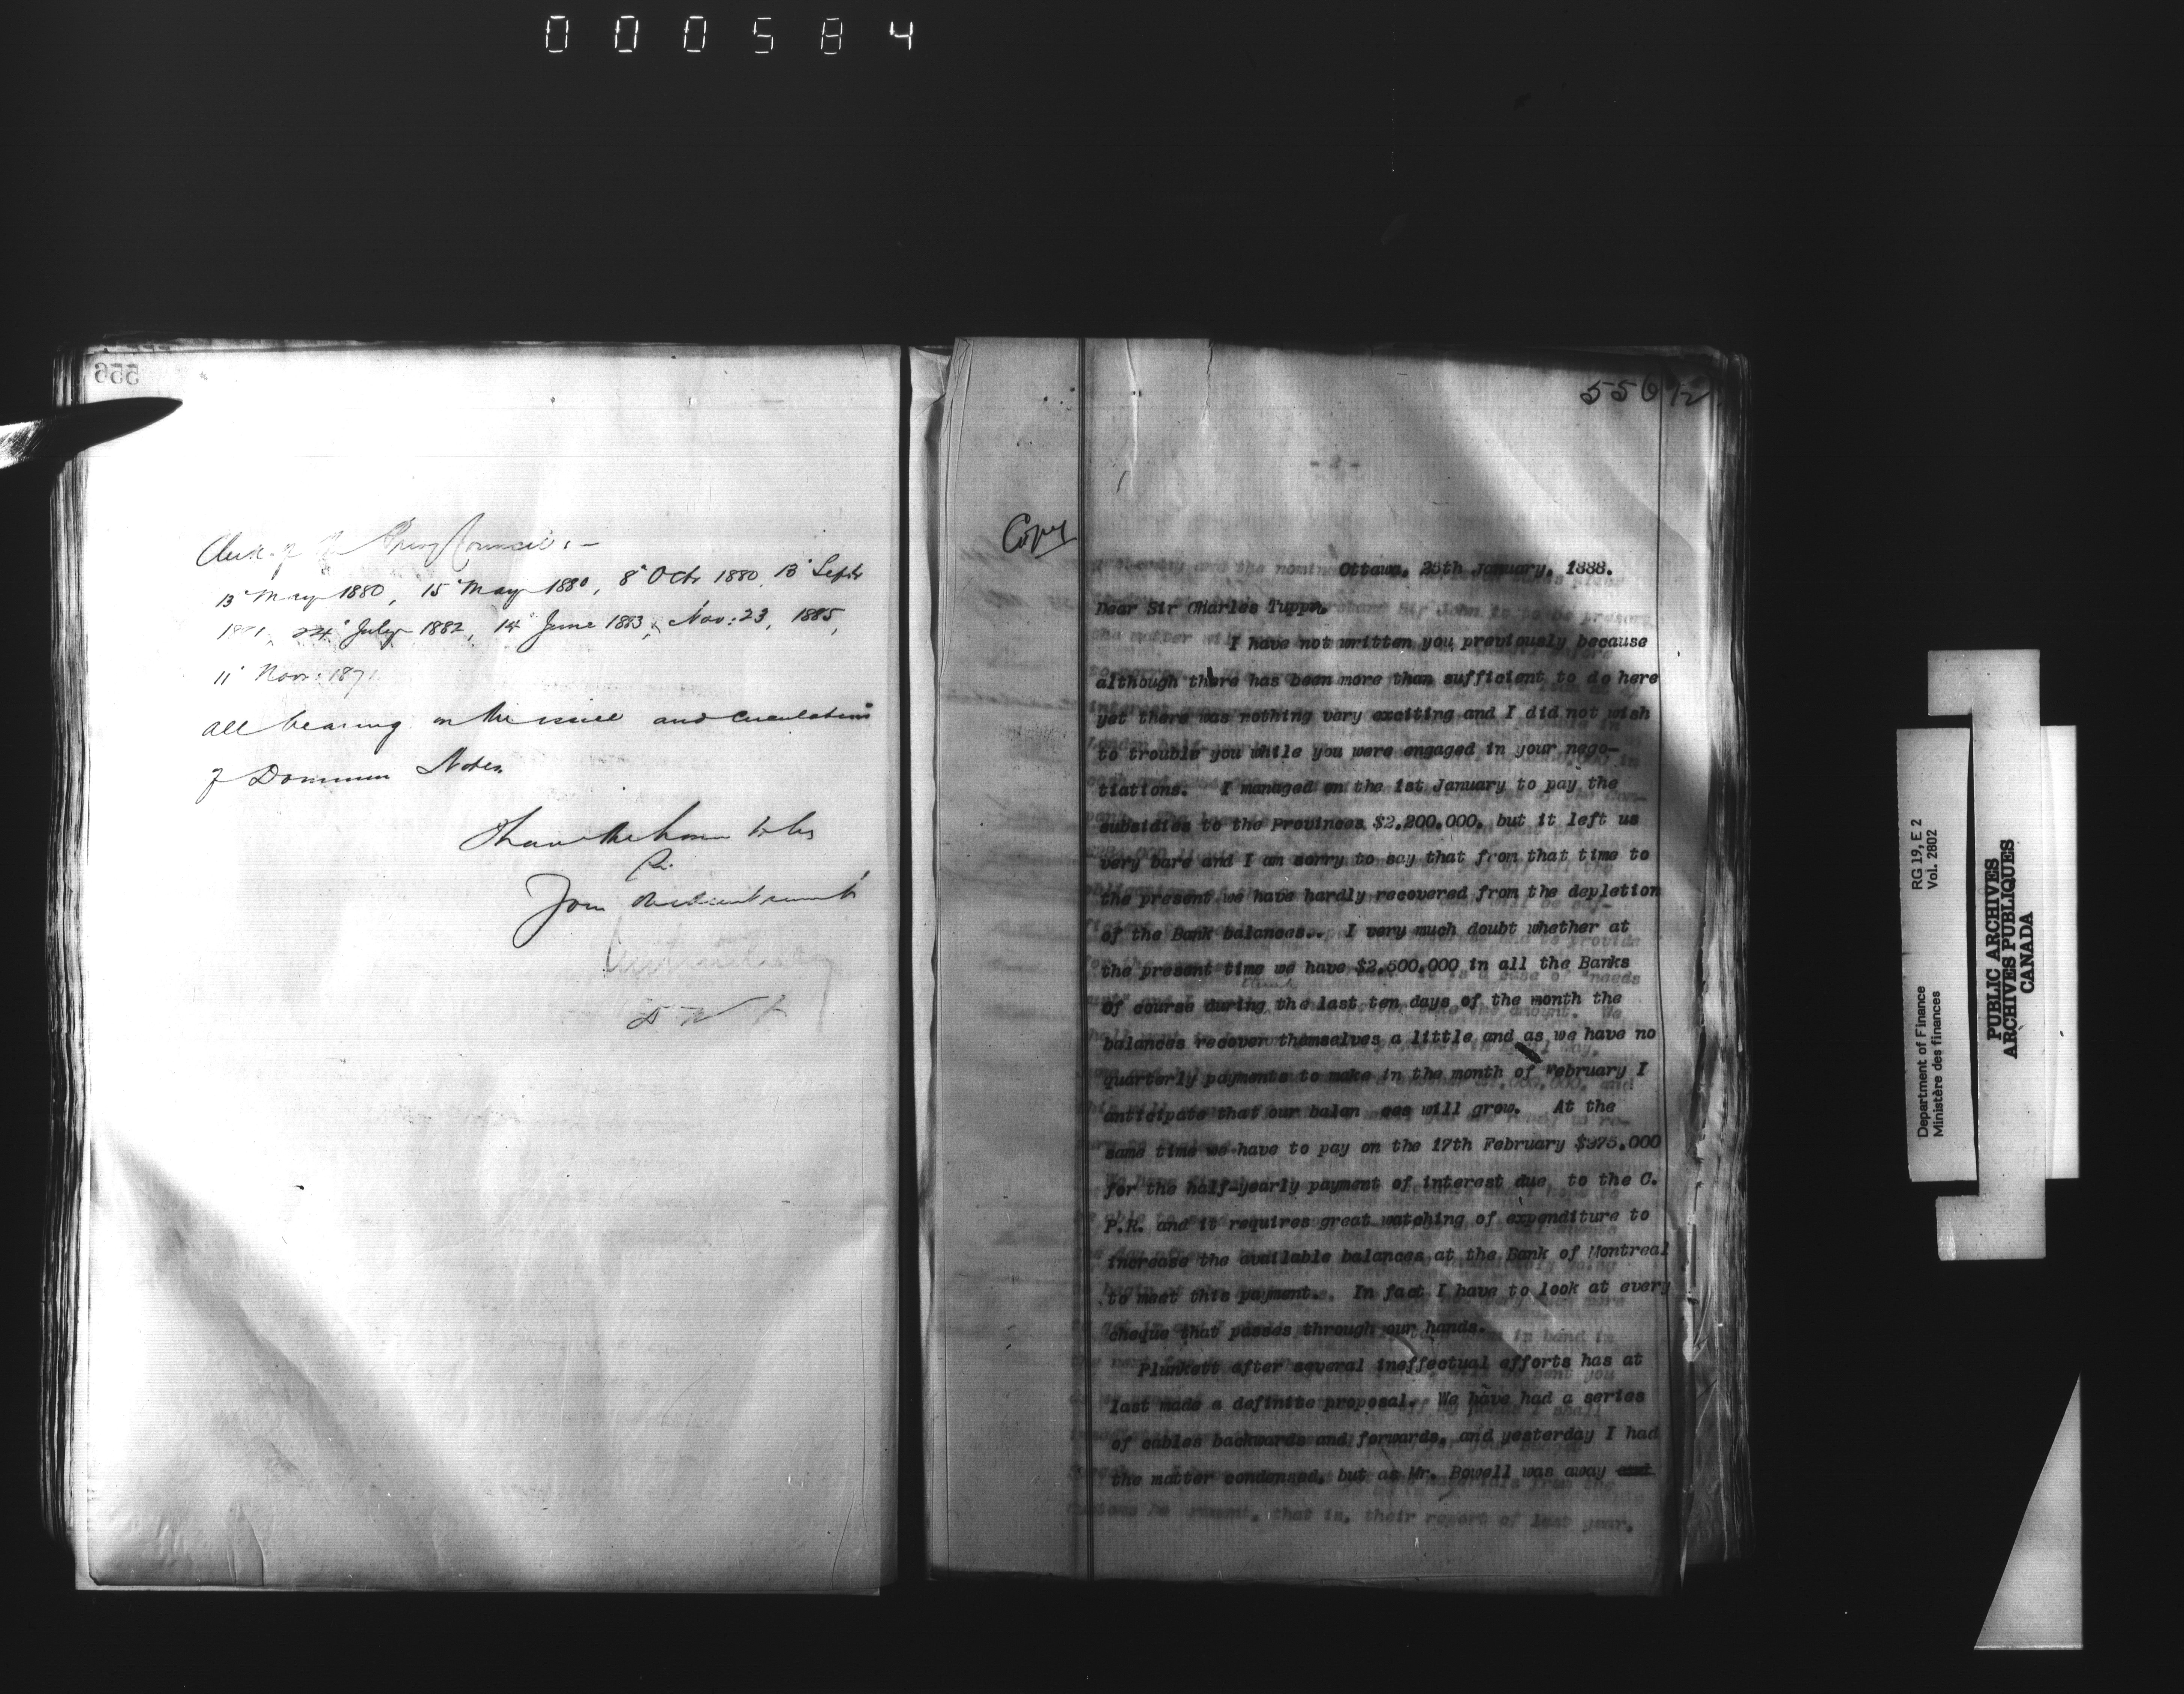 000584
556
Clerk of the Privy Council :-
13 May 1880, 15 May 1880, 8 Octr 1880, 13 Septr
1881, 24 July 1882, 14 June 1883, Nov: 23, 1885,
11 Novr 187
all bearing on the issue and circulation
of Dominion Notes
I have the honor to be
Sir
Your obedient servant
556 1/2
Copy
Ottawa, 28th January, 1888.
Dear Sir Charles Tupper,
I have not written you previously because
although there has been more than sufficient to do here
yet there was nothing very exciting and I did not wish
to trouble you while you were engaged in your nego-
tiations. I managed on the 1st January to pay the
subsidies to the Provinces $2,200,000, but it left us
very bare and I am sorry to say that from that time to
the present we have hardly recovered from the depletion
of the Bank balances.. I very much doubt whether at
the present time we have $2,500,000 in all the Banks
Of course during the last ten days of the month the
balances recover themselves a little and as we have no
quarterly payments to make in the month of February I
anticipate that our balan ces will grow. At the
same time we have to pay on the 17th February $375,000
for the half-yearly payment of interest due to the C.
P.R. and it requires great watching of expenditure to
increase the available balances at the Bank of Montreal
to meet this payment. In fact I have to look at every
cheque that passes through our hands.
Plunkett after several ineffectual efforts has at
last made a definite proposal. We have had a series
of cables backwards and forwards, and yesterday I had
the matter condensed, but as Mr. Bowell was away and
that is, their report of last year.
Department of Finance RG 19, E 2
Ministère des finances Vol. 2802
PUBLIC ARCHIVES
ARCHIVES PUBLIQUES
CANADA